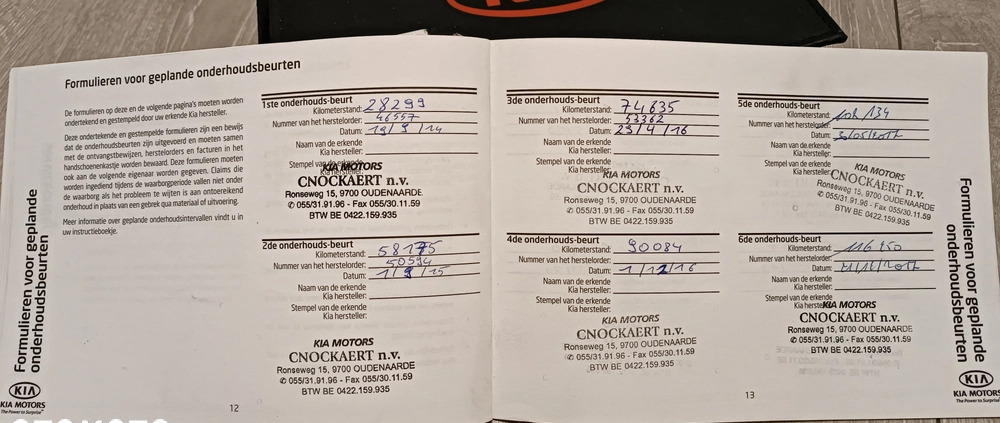 Formulieren voor geplande onderhoudsbeurten
De formulieren op deze en de volgende pagina's moeten worden
ondertekend en gestempeld door uw erkende Kia hersteller.
Deze ondertekende en gestempelde formulieren zijn een bewijs
dat de onderhoudsbeurten zijn uitgevoerd en moeten samen
met de ontvangstbewijzen, herstelorders en facturen in het
handschoenenkastje worden bewaard. Deze formulieren moeten
ook aan de volgende eigenaar worden gegeven. Claims die
worden ingediend tijdens de waarborgperiode vallen niet onder
de waarborg als het probleem te wijten is aan ontoereikend
onderhoud in plaats van een gebrek qua materiaal of uitvoering.
Meer informatie over geplande onderhoudsintervallen vindt u in
uw instructieboekje.
Formulieren voor geplande
onderhoudsbeurten
KIA
KIA MOTORS
The Power to Surprise
12
1ste onderhouds-beurt
Kilometerstand: 28299
Nummer van het herstelorder: 46557
Datum: 19/9/14
Naam van de erkende
Kia hersteller:
Stempel van de erkende
Kia hersteller:
KIA MOTORS
CNOCKAERT n.v.
Ronseweg 15, 9700 OUDENAARDE
✆ 055/31.91.96 - Fax 055/30.11.59
BTW BE 0422.159.935
2de onderhouds-beurt
Kilometerstand: 58175
Nummer van het herstelorder: 50594
Datum: 1/9/15
Naam van de erkende
Kia hersteller:
Stempel van de erkende
Kia hersteller:
KIA MOTORS
CNOCKAERT n.v.
Ronseweg 15, 9700 OUDENAARDE
✆ 055/31.91.96 - Fax 055/30.11.59
BTW BE 0422.159.935
3de onderhouds-beurt
Kilometerstand: 74635
Nummer van het herstelorder: 53362
Datum: 23/4/16
Naam van de erkende
Kia hersteller:
Stempel van de erkende
Kia hersteller:
KIA MOTORS
CNOCKAERT n.v.
Ronseweg 15, 9700 OUDENAARDE
✆ 055/31.91.96 - Fax 055/30.11.59
BTW BE 0422.159.935
4de onderhouds-beurt
Kilometerstand: 90084
Nummer van het herstelorder:
Datum: 1/12/16
Naam van de erkende
Kia hersteller:
Stempel van de erkende
Kia hersteller:
KIA MOTORS
CNOCKAERT n.v.
Ronseweg 15, 9700 OUDENAARDE
✆ 055/31.91.96 - Fax 055/30.11.59
BTW BE 0422.159.935
5de onderhouds-beurt
Kilometerstand: 108 134
Nummer van het herstelorder:
Datum: 30/05/2017
Naam van de erkende
Kia hersteller:
Stempel van de erkende
Kia hersteller:
KIA MOTORS
CNOCKAERT n.v.
Ronseweg 15, 9700 OUDENAARDE
✆ 055/31.91.96 - Fax 055/30.11.59
BTW BE 0422.159.935
6de onderhouds-beurt
Kilometerstand: 116 850
Nummer van het herstelorder:
Datum:
Naam van de erkende
Kia hersteller:
Stempel van de erkende
Kia hersteller:
KIA MOTORS
CNOCKAERT n.v.
Ronseweg 15, 9700 OUDENAARDE
✆ 055/31.91.96 - Fax 055/30.11.59
BTW BE 0422.159.935
13
Formulieren voor geplande
onderhoudsbeurten
KIA
KIA MOTORS
The Power to Surprise